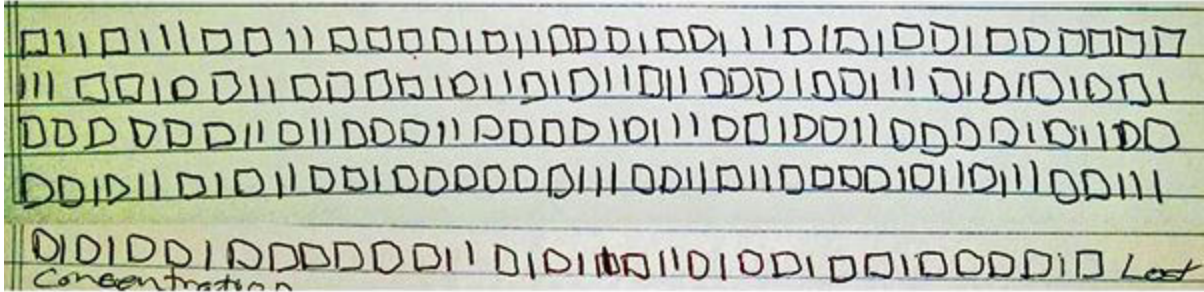 011011100110000101100010011101010010000000
1110010011000010110101101100010011010101001
000000110110001100001011100100110000101100
00101101011001000000111001101100001011011100111
0101001000000110101001101001001000010 Lost
Concentration